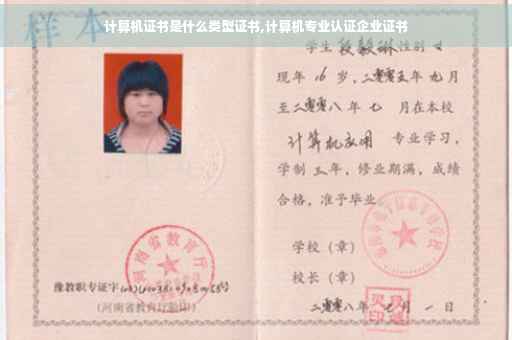 计算机证书是什么类型证书,计算机专业认证企业证书
样本
学生段毅琳性别女
现年16岁,二零零五年九月
至二零零八年七月在本校
计算机应用 专业学习,
学制三年,修业期满,成绩
合格,准予毕业。
学校(章)
校长(章)
二零零八年七月一日
河南省教育厅
豫教职专证字
(河南省教育厅验印)